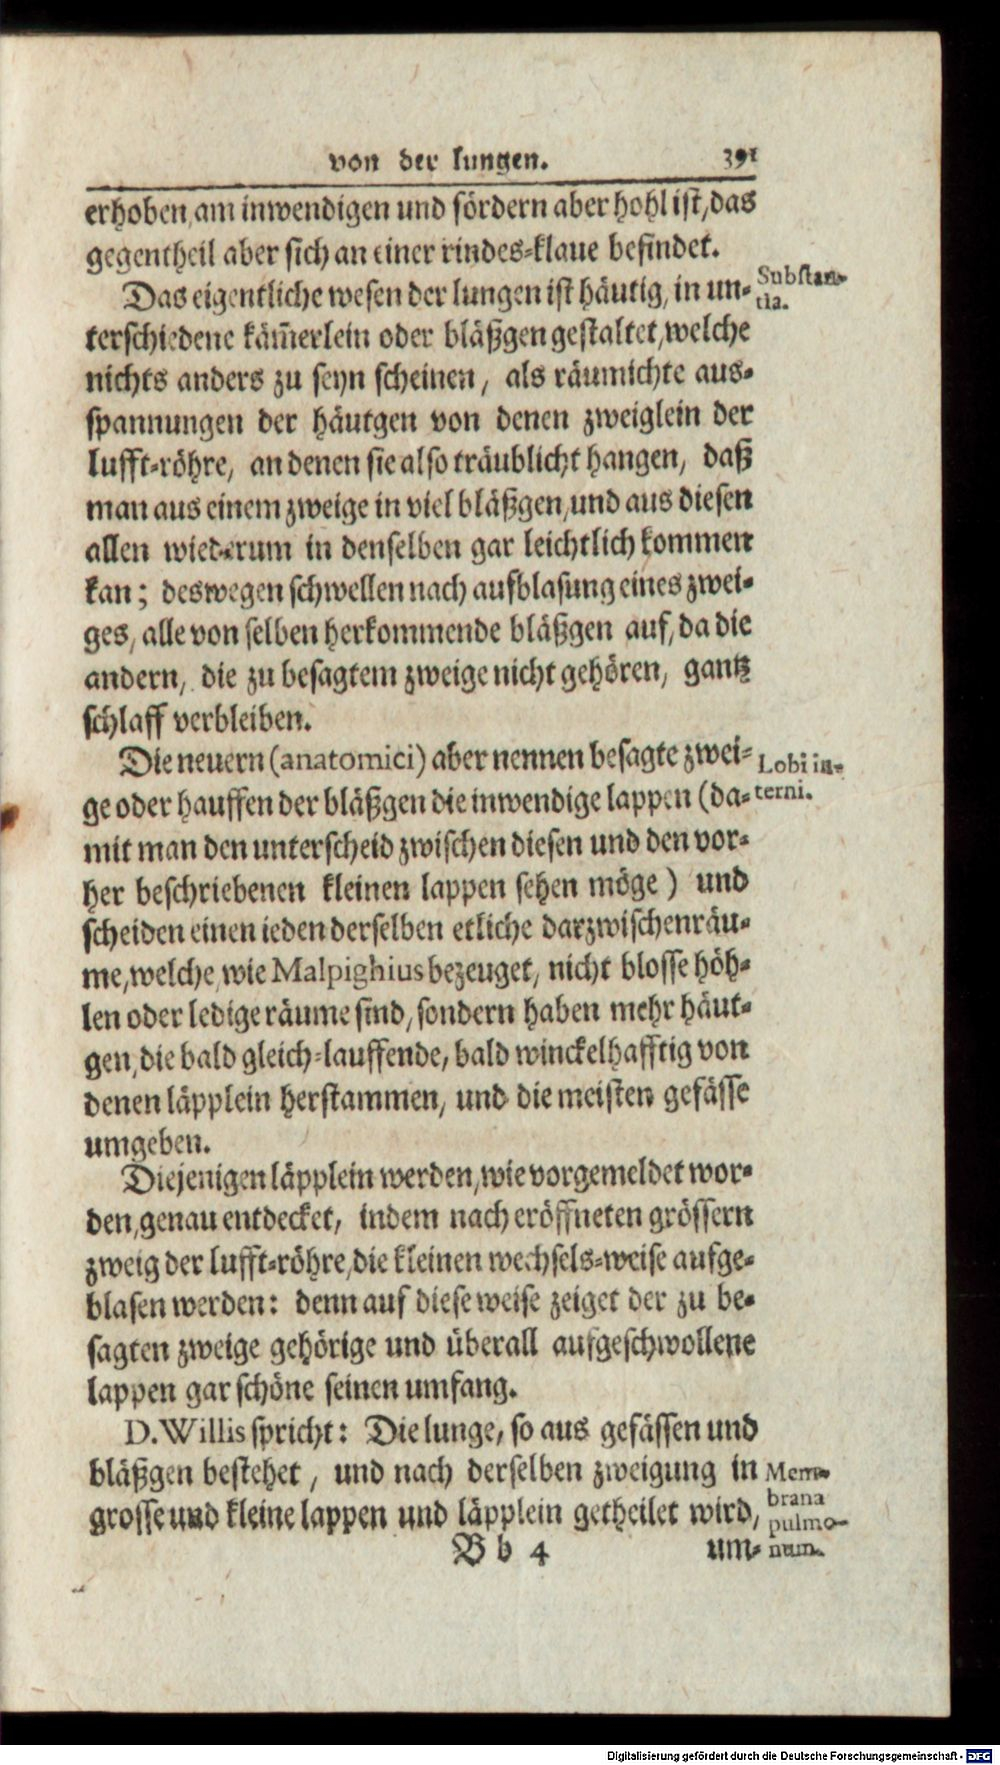 von der lungen. 391
erhoben, am inwendigen und fördern aber hohl ist, das
gegentheil aber sich an einer rindes-klaue befindet.
Das eigentliche wesen der lungen ist häutig, in un-
Substan-
tia.
terschiedene käm̃erlein oder bläßgen gestaltet, welche
nichts anders zu seyn scheinen, als räumichte aus-
spannungen der häutgen von denen zweiglein der
lufft-röhre, an denen sie also träublicht hangen, daß
man aus einem zweige in viel bläßgen, und aus diesen
allen wiederum in denselben gar leichtlich kommen
kan; deswegen schwellen nach aufblasung eines zwei-
ges, alle von selben herkommende bläßgen auf, da die
andern, die zu besagtem zweige nicht gehören, gantz
schlaff verbleiben.
Die neuern (anatomici) aber nennen besagte zwei-
Lobi in-
ge oder hauffen der bläßgen die inwendige lappen (da-
terni.
mit man den unterscheid zwischen diesen und den vor-
her beschriebenen kleinen lappen sehen möge) und
scheiden einen ieden derselben etliche darzwischenräu-
me, welche, wie Malpighius bezeuget, nicht blosse höh-
len oder ledige räume sind, sondern haben mehr häut-
gen, die bald gleich-lauffende, bald winckelhafftig von
denen läpplein herstammen, und die meisten gefässe
umgeben.
Diejenigen läpplein werden, wie vorgemeldet wor-
den, genau entdecket, indem nach eröffneten grössern
zweig der lufft-röhre, die kleinen wechsels-weise aufge-
blasen werden: denn auf diese weise zeiget der zu be-
sagten zweige gehörige und überall aufgeschwollene
lappen gar schöne seinen umfang.
D. Willis spricht: Die lunge, so aus gefässen und
bläßgen bestehet, und nach derselben zweigung in
Mem-
brana
grosse und kleine lappen und läpplein getheilet wird,
pulmo-
num.
B b 4 um-
Digitalisierung gefördert durch die Deutsche Forschungsgemeinschaft - DFG